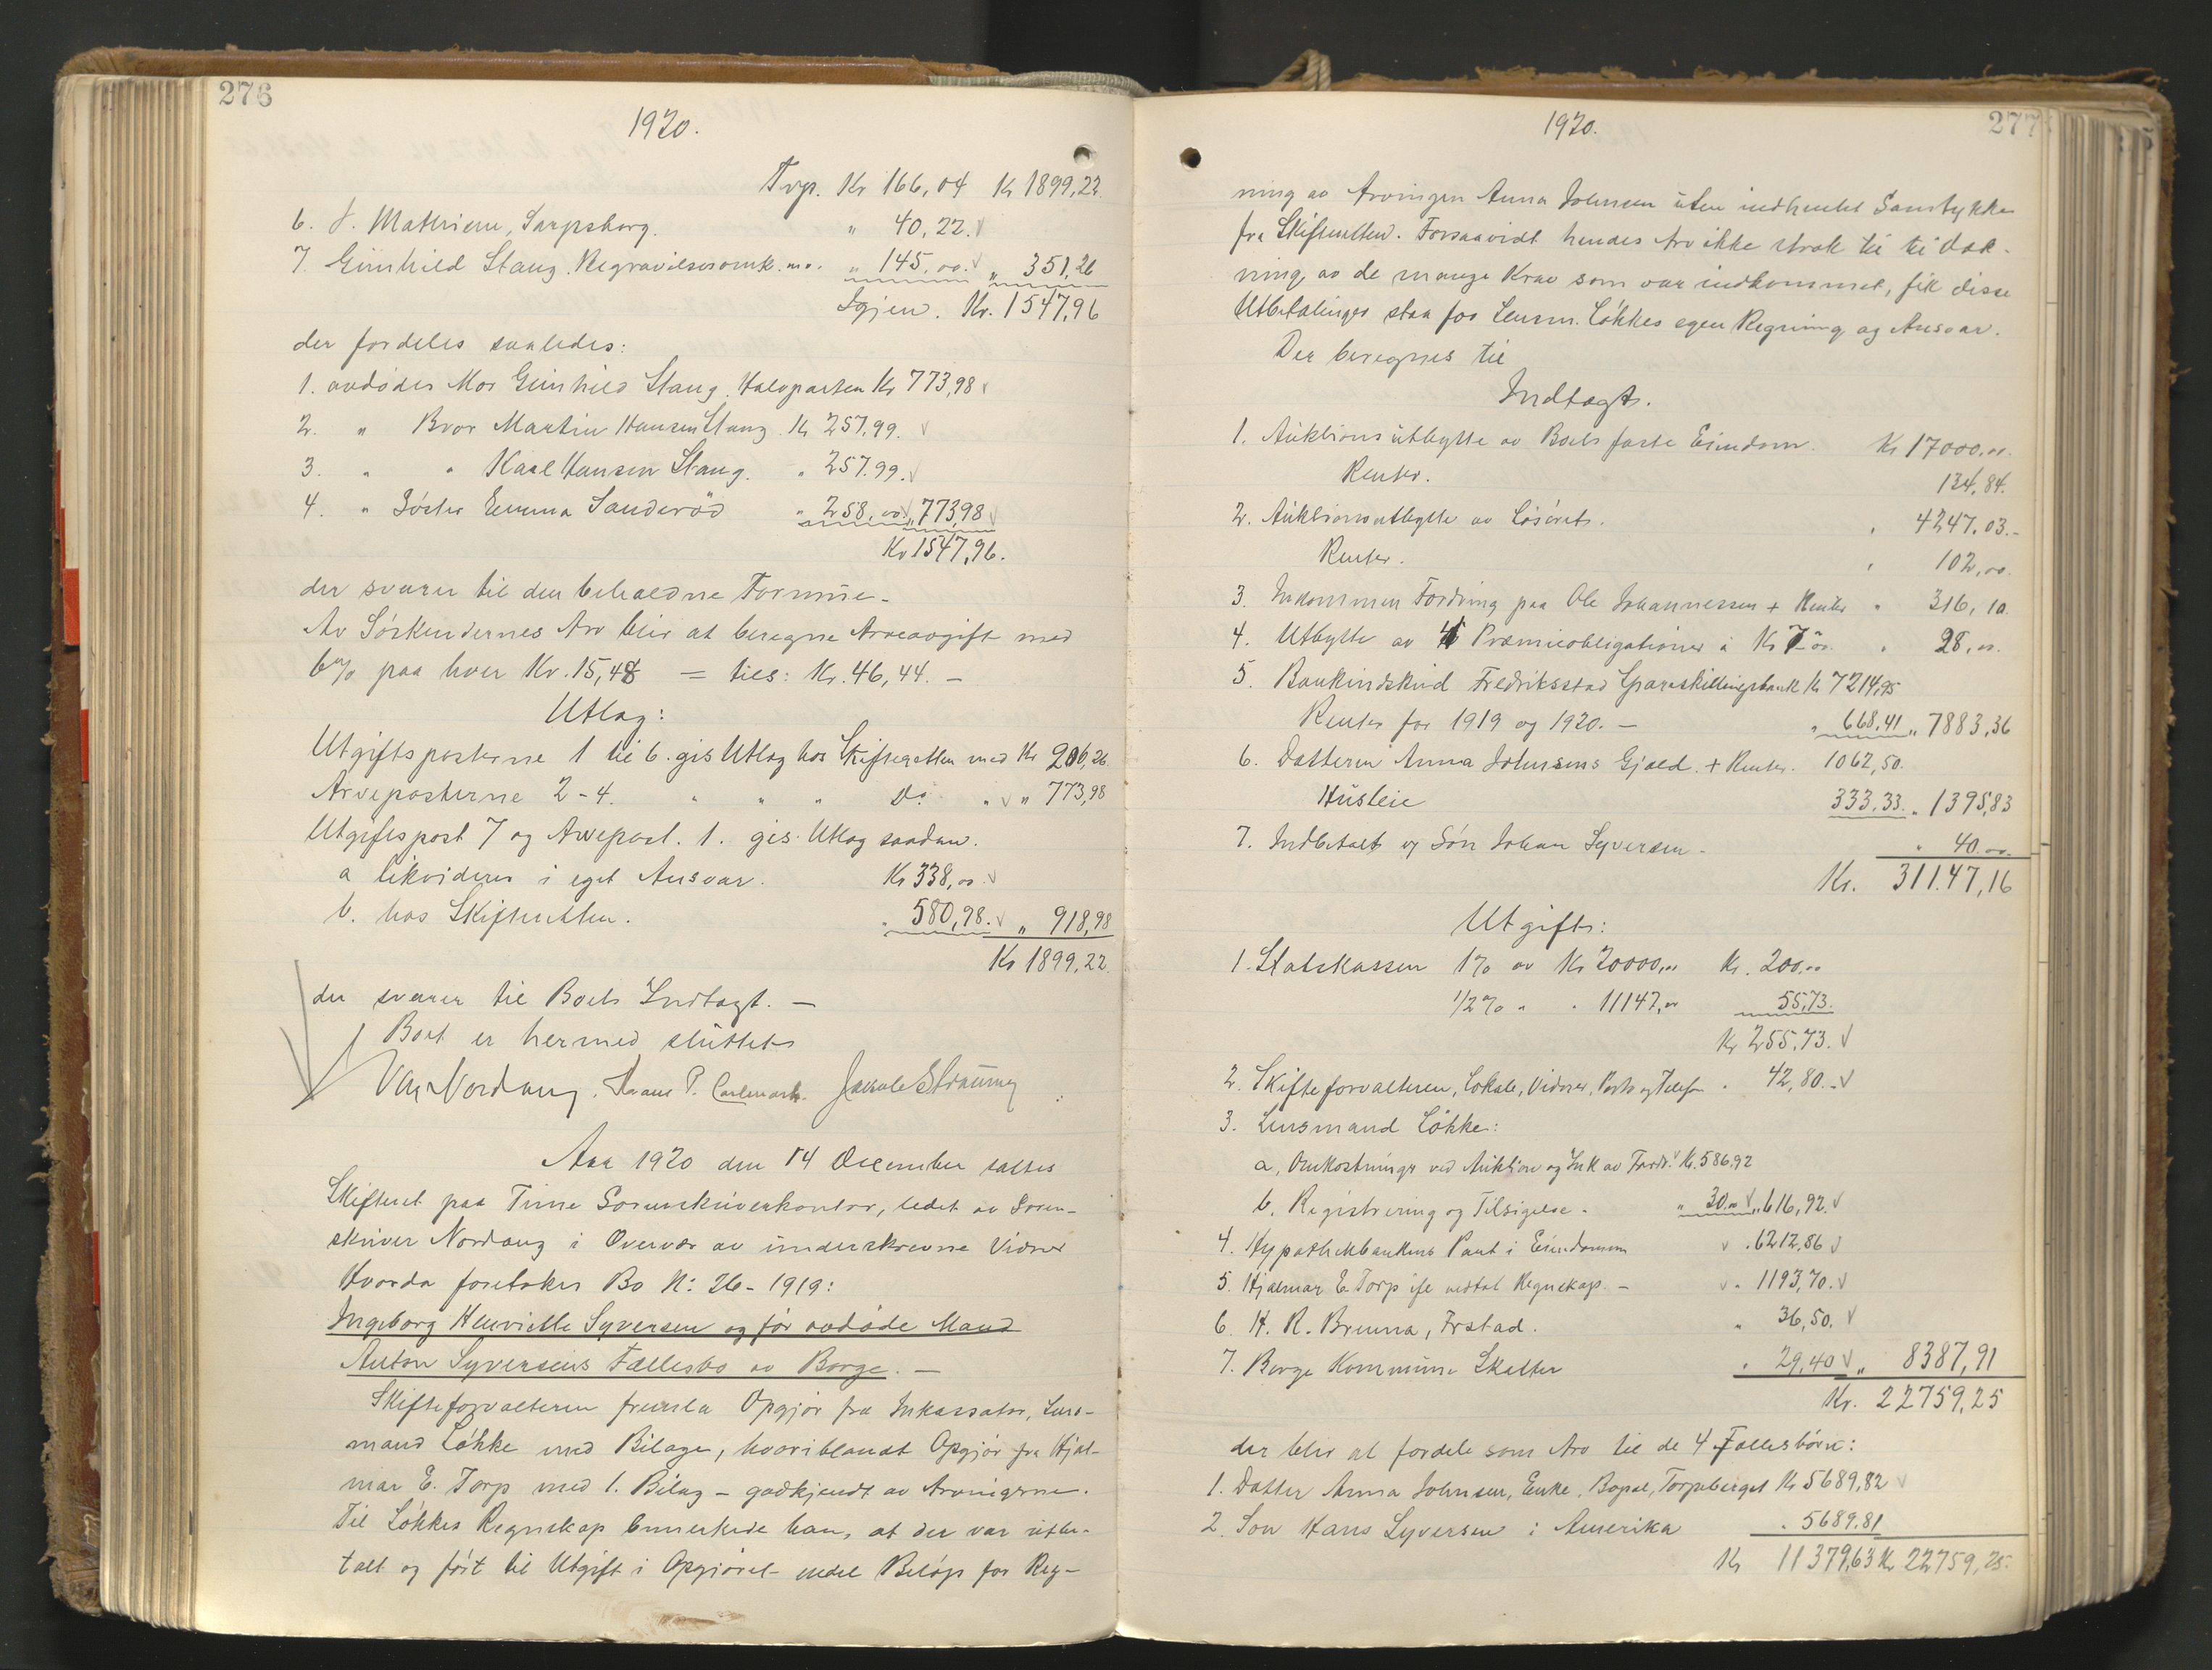 276
1920.
Trp. Kr 166,04 Kr 1899,22.
6. J. Mathiesen, Sarpsborg. " 40,22.
7. Gunhild Stang. Begravelsesomk. m.v. " 145.00. " 351,26
Igjen. Kr. 1547,96
der fordeles saaledes:
1. avdødes Mor Gunhild Stang. Halvparten Kr 773,98
2. " Bror Martin Hansen Stang. Kr 257,99.
3. " " Karl Hansen Stang. " 257.99.
4. " Søster Emma Sanderød " 258,00. " 773,98
Kr 1547,96.
der svarer til den beholdne Formue.
Av Søskendernes Arv blir at beregne Arveavgift med
6% paa hver Kr. 15,48 = ties: Kr. 46,44. —
Utlæg:
Utgiftsposterne 1 til 6. gis Utlæg hos Skifteretten med Kr 206,26.
Arveposterne 2-4. " " " Do " " 773,98
Utgiftspost 7 og Arvepost. 1. gis Utlæg saadan.
a likvideres i eget Ansvar. Kr 338,00.
b. hos Skifteretten. " 580,98. " 918,98
Kr 1899,22.
der svarer til Boets Indtægt. —
Boet er hermed sluttet
Nordang.
Aar 1920 den 14 December sattes
Skifteret paa Tune Sorenskriverkontor, ledet av Soren-
skriver Nordang i Overvær av underskrevne Vidner
Hvorda foretokes Bo No: 26 - 1919:
Ingeborg Henriette Syversen og før avdøde Mand
Anton Syversens Fællesbo av Borge. —
Skifteforvalteren fremla Opgjør fra Inkassator, Lens-
mand Løkke med Bilage, hvoriblandt Opgjør fra Hjal-
mar E. Torp med 1. Bilag - godkjendt av Arvingerne.
Til Løkkes Regnskap bemerkede han, at der var utbe-
talt og ført til Utgift i Opgjøret endel Beløp for Reg-
277
1920.
ning av Arvingen Anna Johnsen uten indhentet Samtykke
fra Skifteretten. Forsaavidt hendes Arv ikke strak til til dæk-
ning av de mange Krav som var indkommet, fik disse
Utbetalinger staa for Lensm. Løkkes egen Regning og Ansvar.
Der beregnes til
Indtægt.
1. Auktionsutbytte av Boets faste Eiendom. Kr 17000,00.
Renter. 134,84.
2. Auktionsutbytte av Løsøret. " 4247.03.-
Renter. " 102,00.
3. Inkommen Fordring paa Ole Johannessen + Renter " 316,10.
4. Utbytte av 4 Præmieobligationer à Kr 7 00. " 28,00.
5. Bankindskud Fredriksstad Spareskillingsbank Kr 7214,95
Renter for 1919 og 1920. — " 668,41 " 7883,36
6. Datteren Anna Johnsens Gjæld. + Renter. 1062,50.
Husleie 333.33. " 1395,83
7. Indbetalt av Søn Johan Syversen - " 40.00.
Kr. 31147,16
Utgift:
1. Statskassen 1% av Kr 20000,00 Kr. 200,00
1/2% " " 11147,00 55,73.
Kr 255,73.
2. Skifteforvalteren, Lokale, Vidner, Porto og Telefon " 42,80.-
3. Lensmand Løkke:
a, Omkostninger ved Auktion og Ink av Fordr. Kr. 586,92
b. Registrering og Tilsigelse - " 30.00 " 616,92.
4. Hypothekbankens Pant i Eiendommen " 6212,86
5. Hjalmar E. Torp ifl vedtat Regnskap. — " 1193,70.
6. H. R. Brenna, Frstad. " 36,50.
7. Borge Kommune Skatter " 29,40 " 8387,91
Kr. 22759,25
der blir at fordele som Arv til de 4 Fællesbørn:
1. Datter Anna Johnsen, Enke, Bopæl, Torpeberget Kr 5689,82
2. Søn Hans Syversen i Amerika " 5689.81
Kr 11379,63 Kr 22759,25.